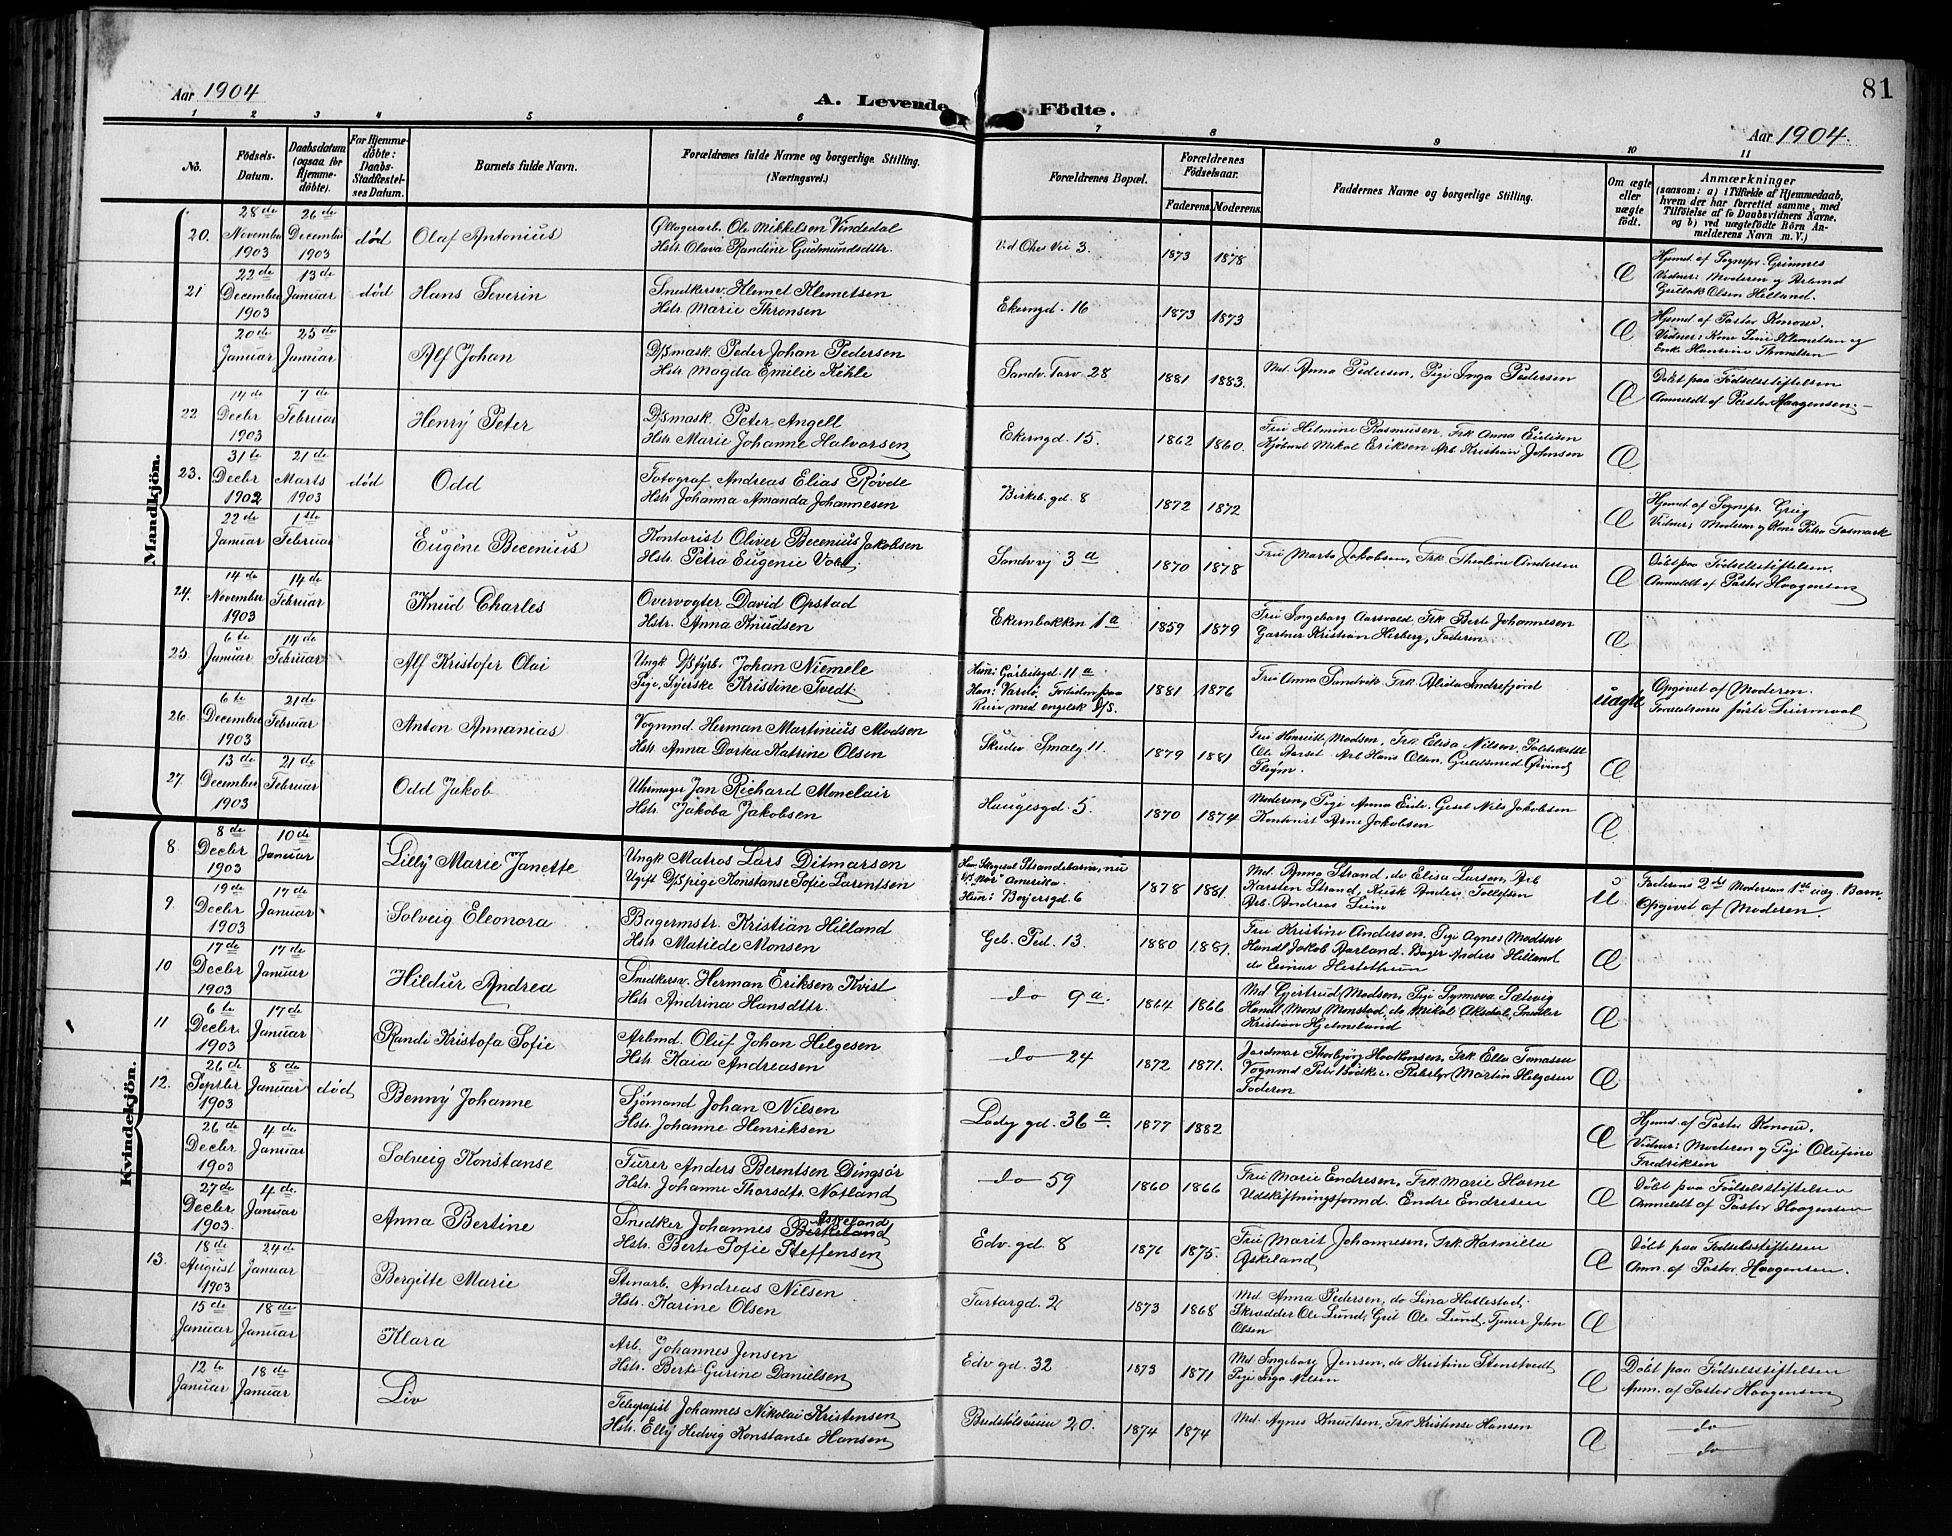 Aar 1904
A. Levende Födte.
81
Aar 1904.
1 2 3 4 5 6 7 8 9 10 11
No.
Födsels-Datum.
Daabsdatum (ogsaa for Hjemmedöbte).
For Hjemmedöbte: Daabs-Stadfæstelses Datum.
Barnets fulde Navn.
Forældrenes fulde Navne og borgerlige Stilling. (Næringsvei.)
Forældrenes Bopæl.
Forældrenes Födselsaar.
Faderens. Moderens.
Faddernes Navne og borgerlige Stilling.
Om ægte eller uægte födt.
Anmærkninger
(saasom: a) i Tilfælde af Hjemmedaab,
hvem der har forrettet samme, med
Tilföielse af to Daabsvidners Navne,
og b) ved uægtefödte Börn Anmelderens Navn m. V.)
Mandkjön.
20. 28de November 1903 26de December 1903 död Olaf Antonius
Ölagerarb. Ole Mikkelsen Vindedal
Hstr. Olava Randine Gudmundsdttr.
3. 1873 1878 Æ
Hjemd. af Sognepr. Grimnes
Vidner: Moderen og Arbmd
Gullak Olsen Helland.
21 22de December 1903 13de Januar död Hans Severin
Snedkersv. Klemet Klemetsen
Hstr. Marie Thronsen
Ekerngd. 16 1873 1873 Æ
Hjemd af Pastor Konow.
20de Januar 25de Januar Alf Johan
D/Smask. Peder Johan Pedersen
Hstr. Magda Emilie Kihle
Sandv. Torv 28 1881 1883. Md. Anna Pedersen, Pige Inga Pedersen Æ
Döbt paa Födselsstiftelsen
Anmeldt af Pastor Haagensen.
22 14de Decbr 1903 7de Februar Henrÿ Peter
D/Smask. Peter Angell
Hstr. Marie Johanne Halvorsen
Ekerngd. 15. 1862 1860. Fru Helmine Rasmusen, Frk Anna Eidisen
Kjöbmd Mikal Eriksen Arb. Kristian Johnsen Æ
23. 31te Decbr 1902 21de Marts 1903 död Odd
Fotograf Andreas Elias Rövde
Hstr. Johanna Amanda Johannesen
Birkeb. gd. 8 1872 1872 Æ
Hjemd. af Sognepr. Greig
Vidner: Moderen og Kone Petra Fosmark
22de Januar 1ste Februar Eugéne Becenius
Kontorist Oliver Becenius Jakobsen
Hstr. Petra Eugenie Vold
Sandvvj 3a 1870 1878 Fru Marta Jakobsen, Frk. Theoline Andersen Æ
Döbt paa Födselsstiftelsen.
Anmeldt af Pastor Haagensen
24. 14de November 1903 14de Februar Knud Charles
Overvogter David Opstad
Hstr. Anna Knudsen
Ekernbakken 1a 1859 1879 Fru Ingeborg Aarsvold Frk Berte Johannesen
Gartner Kristian Herberg, Faderen Æ
25. 6te Januar 14de Februar Alf Kristofer Olai
Ungk D/Sfyrb. Johan Niemele
Pige, Syerske Kristine Tvedt
11a
Han: Vardö
Reise med engelsk D/S. 1881 1876 Fru Anna Sandvik. Frk. Alida Indrefjord uægte
Opgivet af Moderen.
Forældrenes förste Leiermaal
26. 6te December 1903 21de Februar Anton Annanias
Vognmd. Herman Martinius Madsen
Hstr. Anna Dortea Katrine Olsen
Skudev Smalg 11. 1879 1881 Fru Henriette Madsen, Frk. Elisa Nilsen, Politikstbl
Ole Aarset Arb Hans Olsen, Guldsmed Øivind
Pløym. Æ
27. 13de December 1903 21de Februar Odd Jakob
Uhrmager Jan Richard Monclair
Hstr. Jakoba Jakobsen
Haugesgd. 5. 1870 1874 Moderen, Pige Anna Eide. Gesel Nils Jakobsen
Kontorist Arne Jakobsen Æ
Kvindekjön.
8. 8de Decbr 1903 10de Januar Lillÿ Marie Janette
Ungk Matros Lars Ditmarsen
Ugift D/Spige Konstanse Sofie Larentsen
Strandebarm, nu
Amerika.
Hun: Beyersgd. 6 1878 1881 Md. Anna Strand, do Elisa Larsen, Arb
Karsten Strand, Kusk Anders Tollefsen
Arb. Andreas Leim u
Faderens 2det Moderens 1ste uæg. Barn.
Opgivet af Moderen.
9. 19de Decbr 1903 17de Januar Solveig Eleonora
Bagermstr. Kristian Helland
Hstr. Matilde Monsen
Geb. Ped. 13. 1880 1881. Fru Kristine Andersen, Pige Agnes Madsen
Handl Jakob Aarland. Bager Anders Helland
do Einar Æ
10 17de Decbr 1903 17de Januar Hildur Andrea
Snedkersv. Herman Eriksen Kvist
Hstr. Andrina Hansdttr.
do 9a. 1864 1866 Md Gjertrud Madsen, Pige Synneva Sætevig
Handl Mons Monstad, do Mikal Aksdal, Snedker
Kristian Hjelmeland Æ
11 6te Decbr. 1903 17de Januar Randi Kristofa Sofie
Arbmd. Oluf Johan Helgesen
Hstr. Kaia Andreasen
do 24 1872 1871. Jordmor Thorbjörg Haakonsen, Frk. Ella Tomasen
Vognmd Peter Bödker. Martin Helgesen
Faderen Æ
12. 26de Septbr 1903 8de Januar död Bennÿ Johanne
Sjömand Johan Nilsen
Hstr. Johanne Henriksen
Ladeg gd. 36a 1877 1882 Æ
Hjemd. af Pastor Konow.
Vidner: Moderen og Pige Olufine
Fredriksen
26de Decbr. 1903 4de Januar Solveig Konstanse
Furer Anders Berentsen Dingsör
Hstr. Johanne Thorsdtr. Natland
do 59 1860 1866 Fru Marie Endresen, Frk Marie Hovne
Udskiftningsformd. Endre Endresen Æ
Döbt paa Födselsstiftelsen
Anmeldt af Pastor Haagensen
27de Decbr 1903. 4de Januar Anna Bertine
Snedker Johannes Birkeland Askeland
Hstr. Berte Sofie Steffensen
Edv. gd. 8 1876 1875. Fru Marit Johannesen, Frk. Kamilla
Askeland Æ
Döbt paa Födselsstiftelsen
Anm. af Pastor Haagensen.
13. 18de August 1903 24de Januar Bergitte Marie
Stenarb. Andreas Nilsen
Hstr. Karine Olsen
Tartargd. 2 1873 1868 Md Anna Pedersen, do Lina Hatlestad,
Skrædder Ole Lund, Grit Ole Lund, Tjener John
Olsen Æ
15de Januar 18de Januar Klara
Arb. Johannes Jensen
Hstr. Berte Gurine Danielsen
Edv gd. 32 1873 1871 Md Ingeborg Jensen, do Kristine Stenstvedt
Pige Inga Nilsen Æ
Döbt paa Födselsstiftelsen
Anm. af Pastor Haagensen
12te Januar 18de Januar Liv
Telegrafist Johannes Nikolai Kristensen
Hstr. Ellÿ Hedvig Konstanse Hansen
20. 1874 1874 Md. Agnes Knudsen, Frk Kristense Hansen Æ
do
do